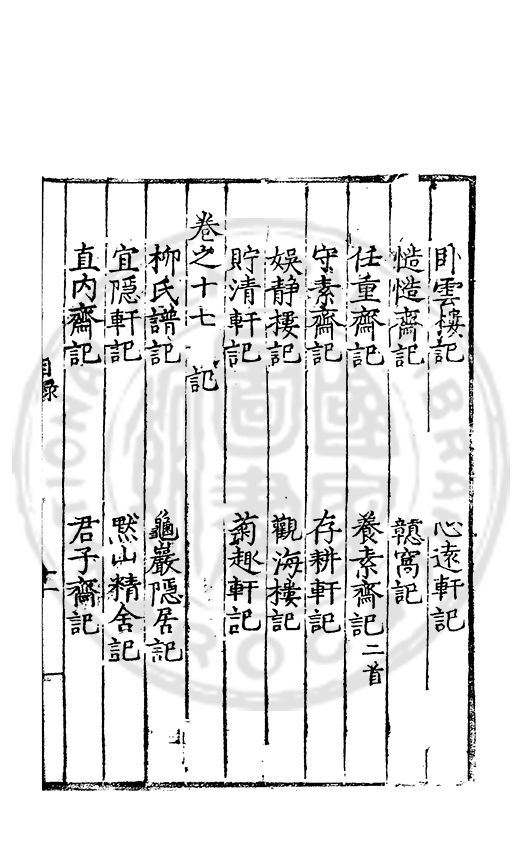 卧雲樓記　心遠軒記
慥慥齋記　戇窩記
任重齋記　養素齋記二首
守素齋記　存耕軒記
娛静樓記　觀海樓記
貯清軒記　菊趣軒記
卷之十七　記
柳氏譜記　龜巖隱居記
宜隱軒記　默山精舍記
直内齋記　君子齋記
目錄